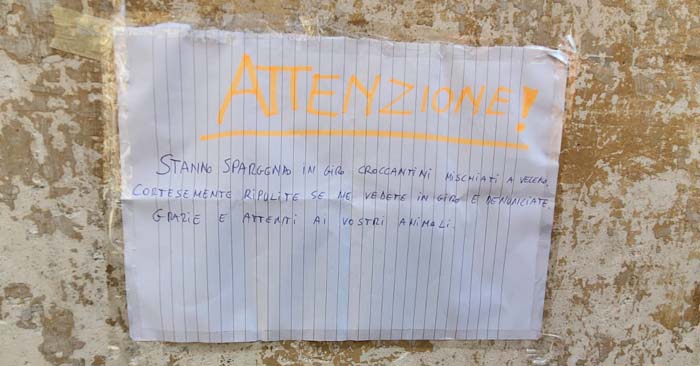 ATTENZIONE!
STANNO SPARGENDO IN GIRO CROCCANTINI MISCHIATI A VELENO.
CORTESEMENTE RIPULITE SE NE VEDETE IN GIRO E DENUNCIATE.
GRAZIE E ATTENTI AI VOSTRI ANIMALI.